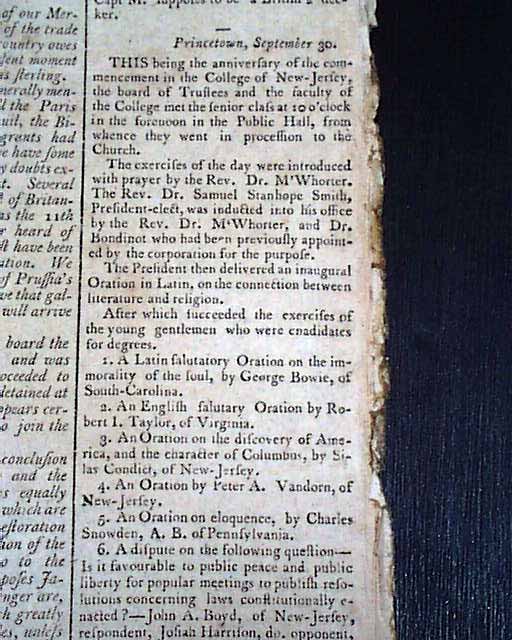 of our Mer-
of the trade
country owes
sent moment
as sterling.
nerally men-
the Paris
the Bi-
grants had
we have some
doubts ex-
t. Several
of Britan-
as the 11th
heard of
have been
ation. We
of Prussia's
ve that gal-
will arrive
board the
and was
oceeded to
detained at
ppears cer-
o join the
conclusion
and the
s equally
which are
estoration
ion of the
o to the
poses Ja-
enger are,
h greatly
les, unless
ker.
Princetown, September 30.
THIS being the anniversary of the com-
mencement in the College of New-Jersey,
the board of Trustees and the faculty of
the College met the senior class at 10 o'clock
in the forenoon in the Public Hall, from
whence they went in procession to the
Church.
The exercises of the day were introduced
with prayer by the Rev. Dr. M'Whorter.
The Rev. Dr. Samuel Stanhope Smith,
President-elect, was inducted into his office
by the Rev. Dr. M'Whorter, and Dr.
Bondinot who had been previously appoint-
ed by the corporation for the purpose.
The President then delivered an inaugural
Oration in Latin, on the connection between
literature and religion.
After which succeeded the exercises of
the young gentlemen who were cnadidates
for degrees.
1. A Latin salutatory Oration on the im-
morality of the soul, by George Bowie, of
South-Carolina.
2. An English salutary Oration by Ro-
bert I. Taylor, of Virginia.
3. An Oration on the discovery of Ame-
rica, and the character of Columbus, by Si-
las Condict, of New-Jersey.
4. An Oration by Peter A. Vandorn, of
New-Jersey.
5. An Oration on eloquence, by Charles
Snowden, A. B. of Pennsylvania.
6. A dispute on the following question—
Is it favourable to public peace and public
liberty for popular meetings to publish reso-
lutions concerning laws constitutionally e-
nacted?—John A. Boyd, of New-Jersey,
respondent, Josiah Harrison, do. opponent,